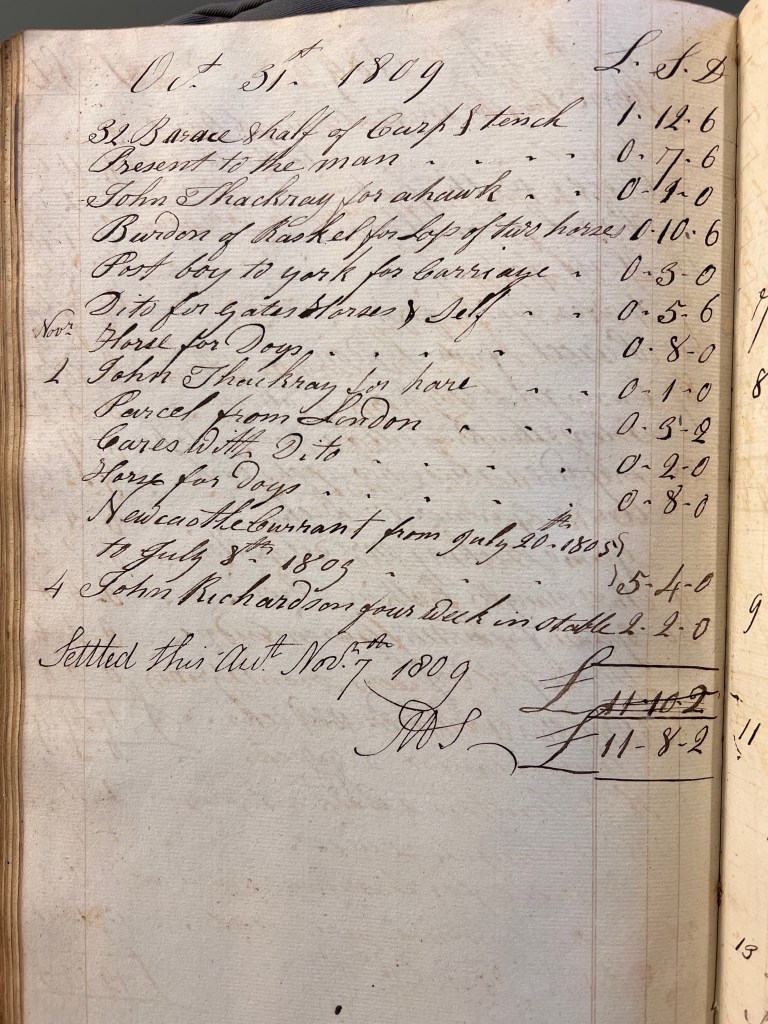 Oct. 31st. 1809 L. S. D
32 Barace & half of Carp & tench 1-12-6
Present to the man . . . . 0-7-6
John Thackray for a hawk . . 0-1-0
Burdon of Raskel for Loss of two horses 0-10-6
Post boy to york for Carriage . 0-3-0
Dito for gates Horses & Self . . 0-5-6
Novr.
Horse for Dogs . . . . . 0-8-0
1 John Thackray for hare . . 0-1-0
Parcel from London . . . . 0-3-2
Cares With Dito . . . . . 0-2-0
Horse for Dogs . . . . . 0-8-0
Newcastle Currant from July 20th. 1805
to July 8th. 1809 . . . . 5-4-0
4 John Richardson four Week in stable 2-2-0
Settled this Act. Novr. 7th 1809
£ 11-10-2
£ 11-8-2
7
8
9
11
13